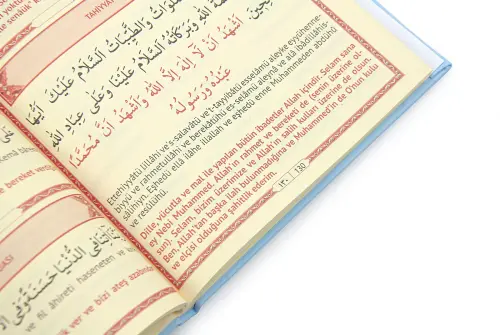 TAHİYYA
اَلسَّلَامُ عَلَيْكَ اَيُّهَا
وَالطَّيِّبَاتُ
اللّٰهِ وَبَرَكَاتُهُ اَلسَّلَامُ عَلَيْنَا وَعَلٰى عِبَادِ اللّٰهِ
اَشْهَدُ اَنْ لَا اِلٰهَ اِلَّا اللّٰهُ وَاَشْهَدُ اَنَّ مُحَمَّدًا
عَبْدُهُ وَرَسُولُهُ
Ettehiyyâtü lillâhi ve's-salavâtü ve't-tayyibâtü esselâmü aleyke eyyühenne-
biyyü ve rahmetullâhi ve berekâtühü es-selâmü aleynâ ve alâ ibâdillâhis-
sâlihiyn. Eşhedü ellâ ilâhe illallah ve eşhedü enne Muhammeden abdühü
ve resûlühü.
Dille, vücutla ve mal ile yapılan bütün ibadetler Allah içindir. Selam sana
ey Nebi Muhammed. Allah'ın rahmet ve bereketi de senin üzerine ol-
sun). Selam, bizim üzerimize ve Allah'ın salih kulları üzerine de olsun.
Ben, Allah'tan başka ilah bulunmadığına ve Muhammed'in de O'nun kulu
ve elçisi olduğuna şahitlik ederim.
١٣٠ 130
ve bereket
DUASI
الدُّنْيَا حَسَنَةً وَفِى
âhireti haseneten
ver ve bizi ateş azabında